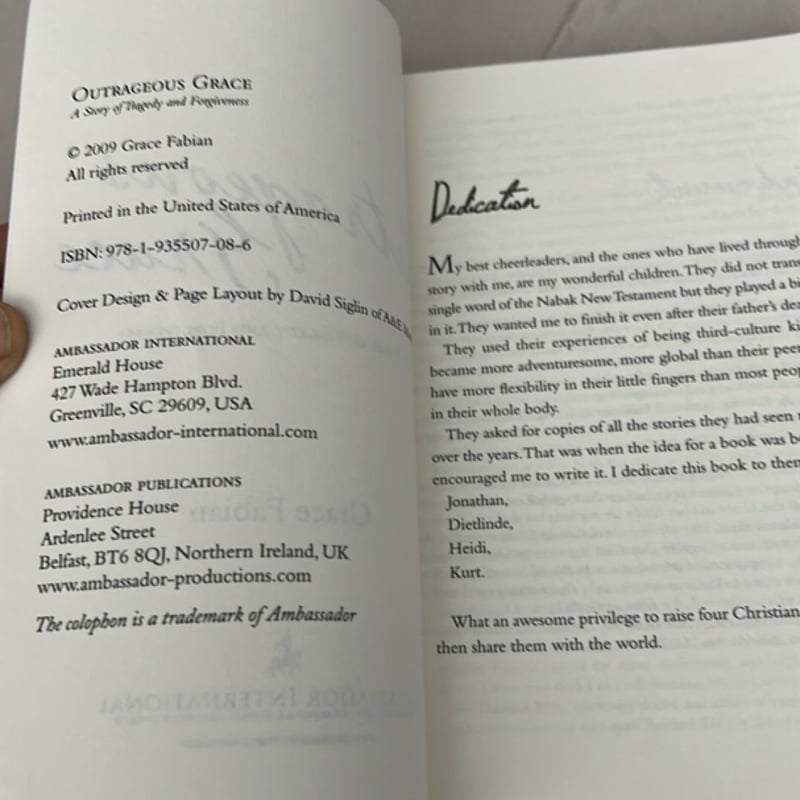 OUTRAGEOUS GRACE
A Story of Tragedy and Forgiveness
© 2009 Grace Fabian
All rights reserved
Printed in the United States of America
ISBN: 978-1-935507-08-6
Cover Design & Page Layout by David Siglin of A&E
AMBASSADOR INTERNATIONAL
Emerald House
427 Wade Hampton Blvd.
Greenville, SC 29609, USA
www.ambassador-international.com
AMBASSADOR PUBLICATIONS
Providence House
Ardenlee Street
Belfast, BT6 8QJ, Northern Ireland, UK
www.ambassador-productions.com
The colophon is a trademark of Ambassador
Dedication
My best cheerleaders, and the ones who have lived through
story with me, are my wonderful children. They did not
single word of the Nabak New Testament but they played a
in it. They wanted me to finish it even after their father's
They used their experiences of being third-culture
became more adventuresome, more global than their
have more flexibility in their little fingers than most
in their whole body.
They asked for copies of all the stories they had seen
over the years. That was when the idea for a book was
encouraged me to write it. I dedicate this book to
Jonathan,
Dietlinde,
Heidi,
Kurt.
What an awesome privilege to raise four Christian
then share them with the world.
Grace Fabian